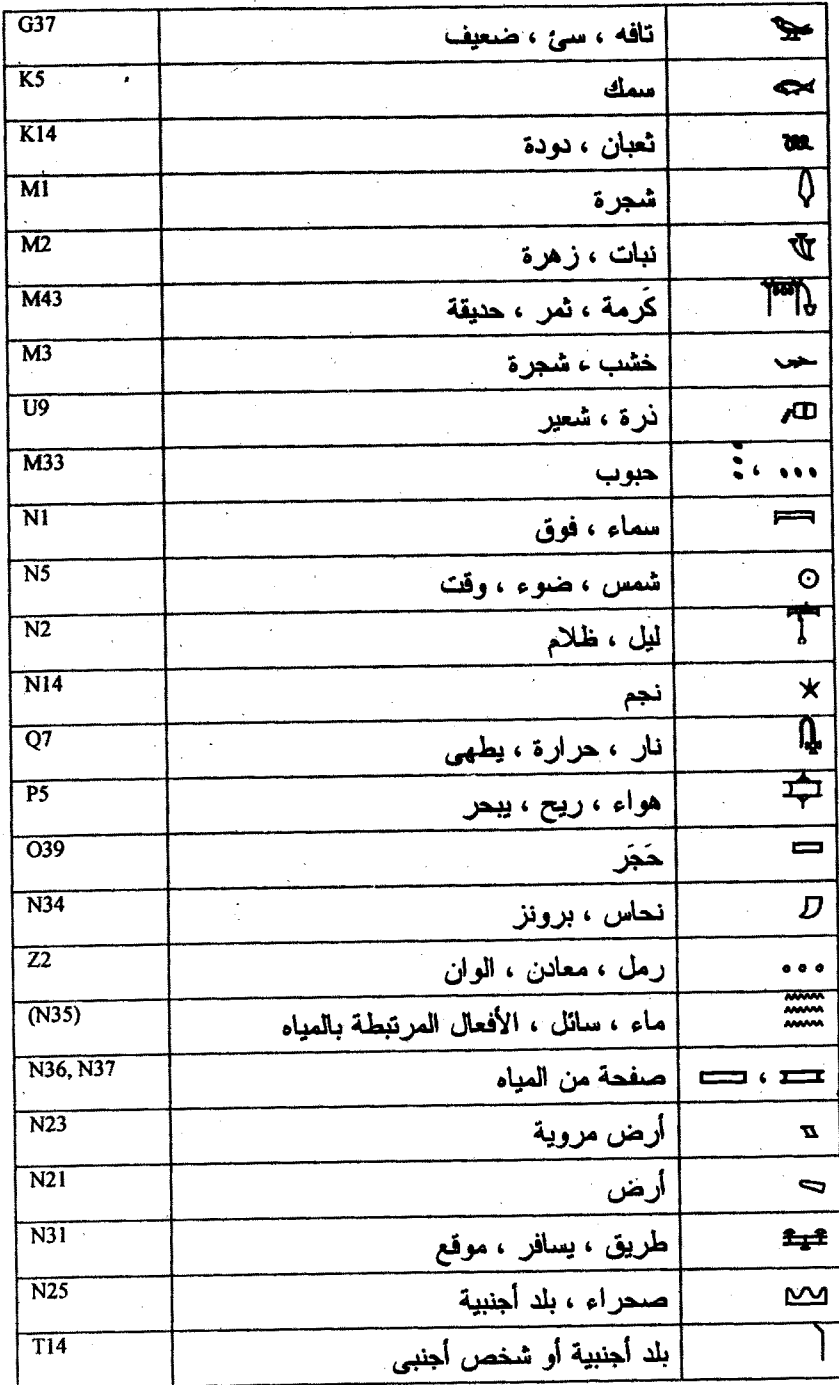 G37 تافه ، سئ ، ضعيف
K5 سمك
K14 ثعبان ، دودة
M1 شجرة
M2 نبات ، زهرة
M43 كَرمة ، ثمر ، حديقة
M3 خشب ، شجرة
U9 ذرة ، شعير
M33 حبوب ،
N1 سماء ، فوق
N5 شمس ، ضوء ، وقت
N2 ليل ، ظلام
N14 نجم
Q7 نار ، حرارة ، يطهى
P5 هواء ، ريح ، يبحر
O39 حَجَر
N34 نحاس ، برونز
Z2 رمل ، معادن ، الوان
(N35) ماء ، سائل ، الأفعال المرتبطة بالمياه
N36, N37 صفحة من المياه ،
N23 أرض مروية
N21 أرض
N31 طريق ، يسافر ، موقع
N25 صحراء ، بلد أجنبية
T14 بلد أجنبية أو شخص أجنبى